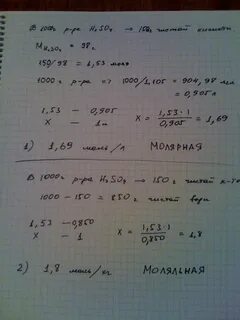 В 1000г р-ра H₂SO₄ → 150г чистой кислоты
M H₂SO₄ = 98г
150/98 = 1,53 моля
1000г р-ра => 1000/1,105 = 904,98 мл
= 0,905л
1,53 — 0,905
X — 1л
X = 1,53·1 / 0,905 = 1,69
1) 1,69 моль/л МОЛЯРНАЯ
В 1000г р-ра H₂SO₄ → 150г чистой к-ты
1000 - 150 = 850г чистой воды
1,53 — 0,850
X — 1
X = 1,53·1 / 0,850 = 1,8
2) 1,8 моль/кг МОЛЯЛЬНАЯ